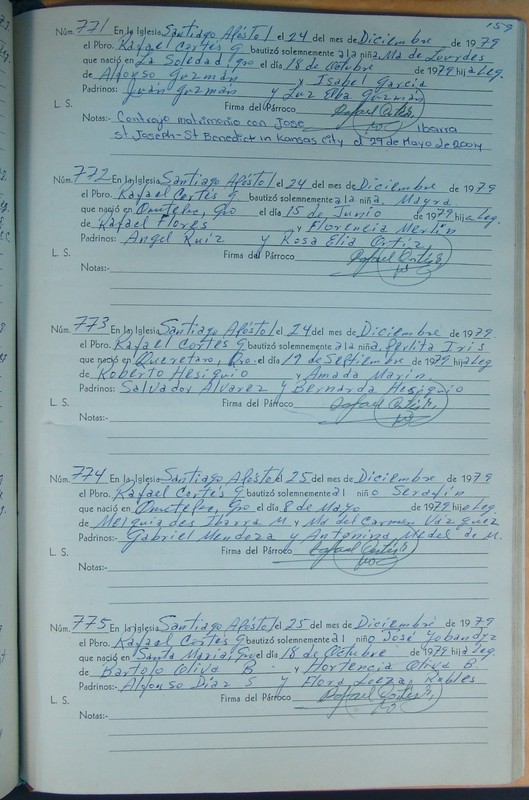 159
Núm. 771 En la Iglesia Santiago Apóstol el 24 del mes de Diciembre de 1979
el Pbro. Rafael Cortés G bautizó solemnemente a la niña Ma de Lourdes
que nació en La Soledad, Gro el día 18 de Octubre de 1979 hija Leg.
de Alfonso Guzmán y Isabel García
Padrinos: Juan Guzmán y Luz Elba Guzmán
L. S. Firma del Párroco Rafael Cortés
Notas: Contrajo matrimonio con Jose Ibarra
St. Joseph-St Benedict in Kansas City el 29 de Mayo de 2004
Núm. 772 En la Iglesia Santiago Apóstol el 24 del mes de Diciembre de 1979
el Pbro. Rafael Cortés G bautizó solemnemente a la niña Mayra
que nació en Ometepec, Gro el día 15 de Junio de 1979 hija Leg.
de Rafael Flores y Florencia Merlin
Padrinos: Angel Ruiz y Rosa Elia Ortiz
L. S. Firma del Párroco Rafael Cortés
Notas:-
Núm. 773 En la Iglesia Santiago Apóstol el 24 del mes de Diciembre de 1979
el Pbro. Rafael Cortés G bautizó solemnemente a la niña Perlita Iris
que nació en Queretaro, Qro. el día 19 de Septiembre de 1979 hija Leg
de Roberto Hesiquio y Amada Marin
Padrinos: Salvador Alvarez y Bernarda Hesiquio
L. S. Firma del Párroco Rafael Cortés
Notas:-
Núm. 774 En la Iglesia Santiago Apóstol el 25 del mes de Diciembre de 1979
el Pbro. Rafael Cortés G bautizó solemnemente a l niño Serafín
que nació en Ometepec, Gro el día 8 de Mayo de 1979 hijo Leg.
de Melquiades Ibarra M y Ma del Carmen Vázquez
Padrinos:- Gabriel Mendoza y Antonina Medel de M.
L. S. Firma del Párroco Rafael Cortés
Notas:-
Núm. 775 En la Iglesia Santiago Apóstol el 25 del mes de Diciembre de 1979
el Pbro. Rafael Cortés G bautizó solemnemente a l niño José
que nació en Santa María, Gro el día 18 de Octubre de 1979 hijo Leg.
de Bartolo Oliva B. y Hortencia Oliva B
Padrinos: Alfonso Díaz S y Flora Robles
L. S. Firma del Párroco Rafael Cortés
Notas:-